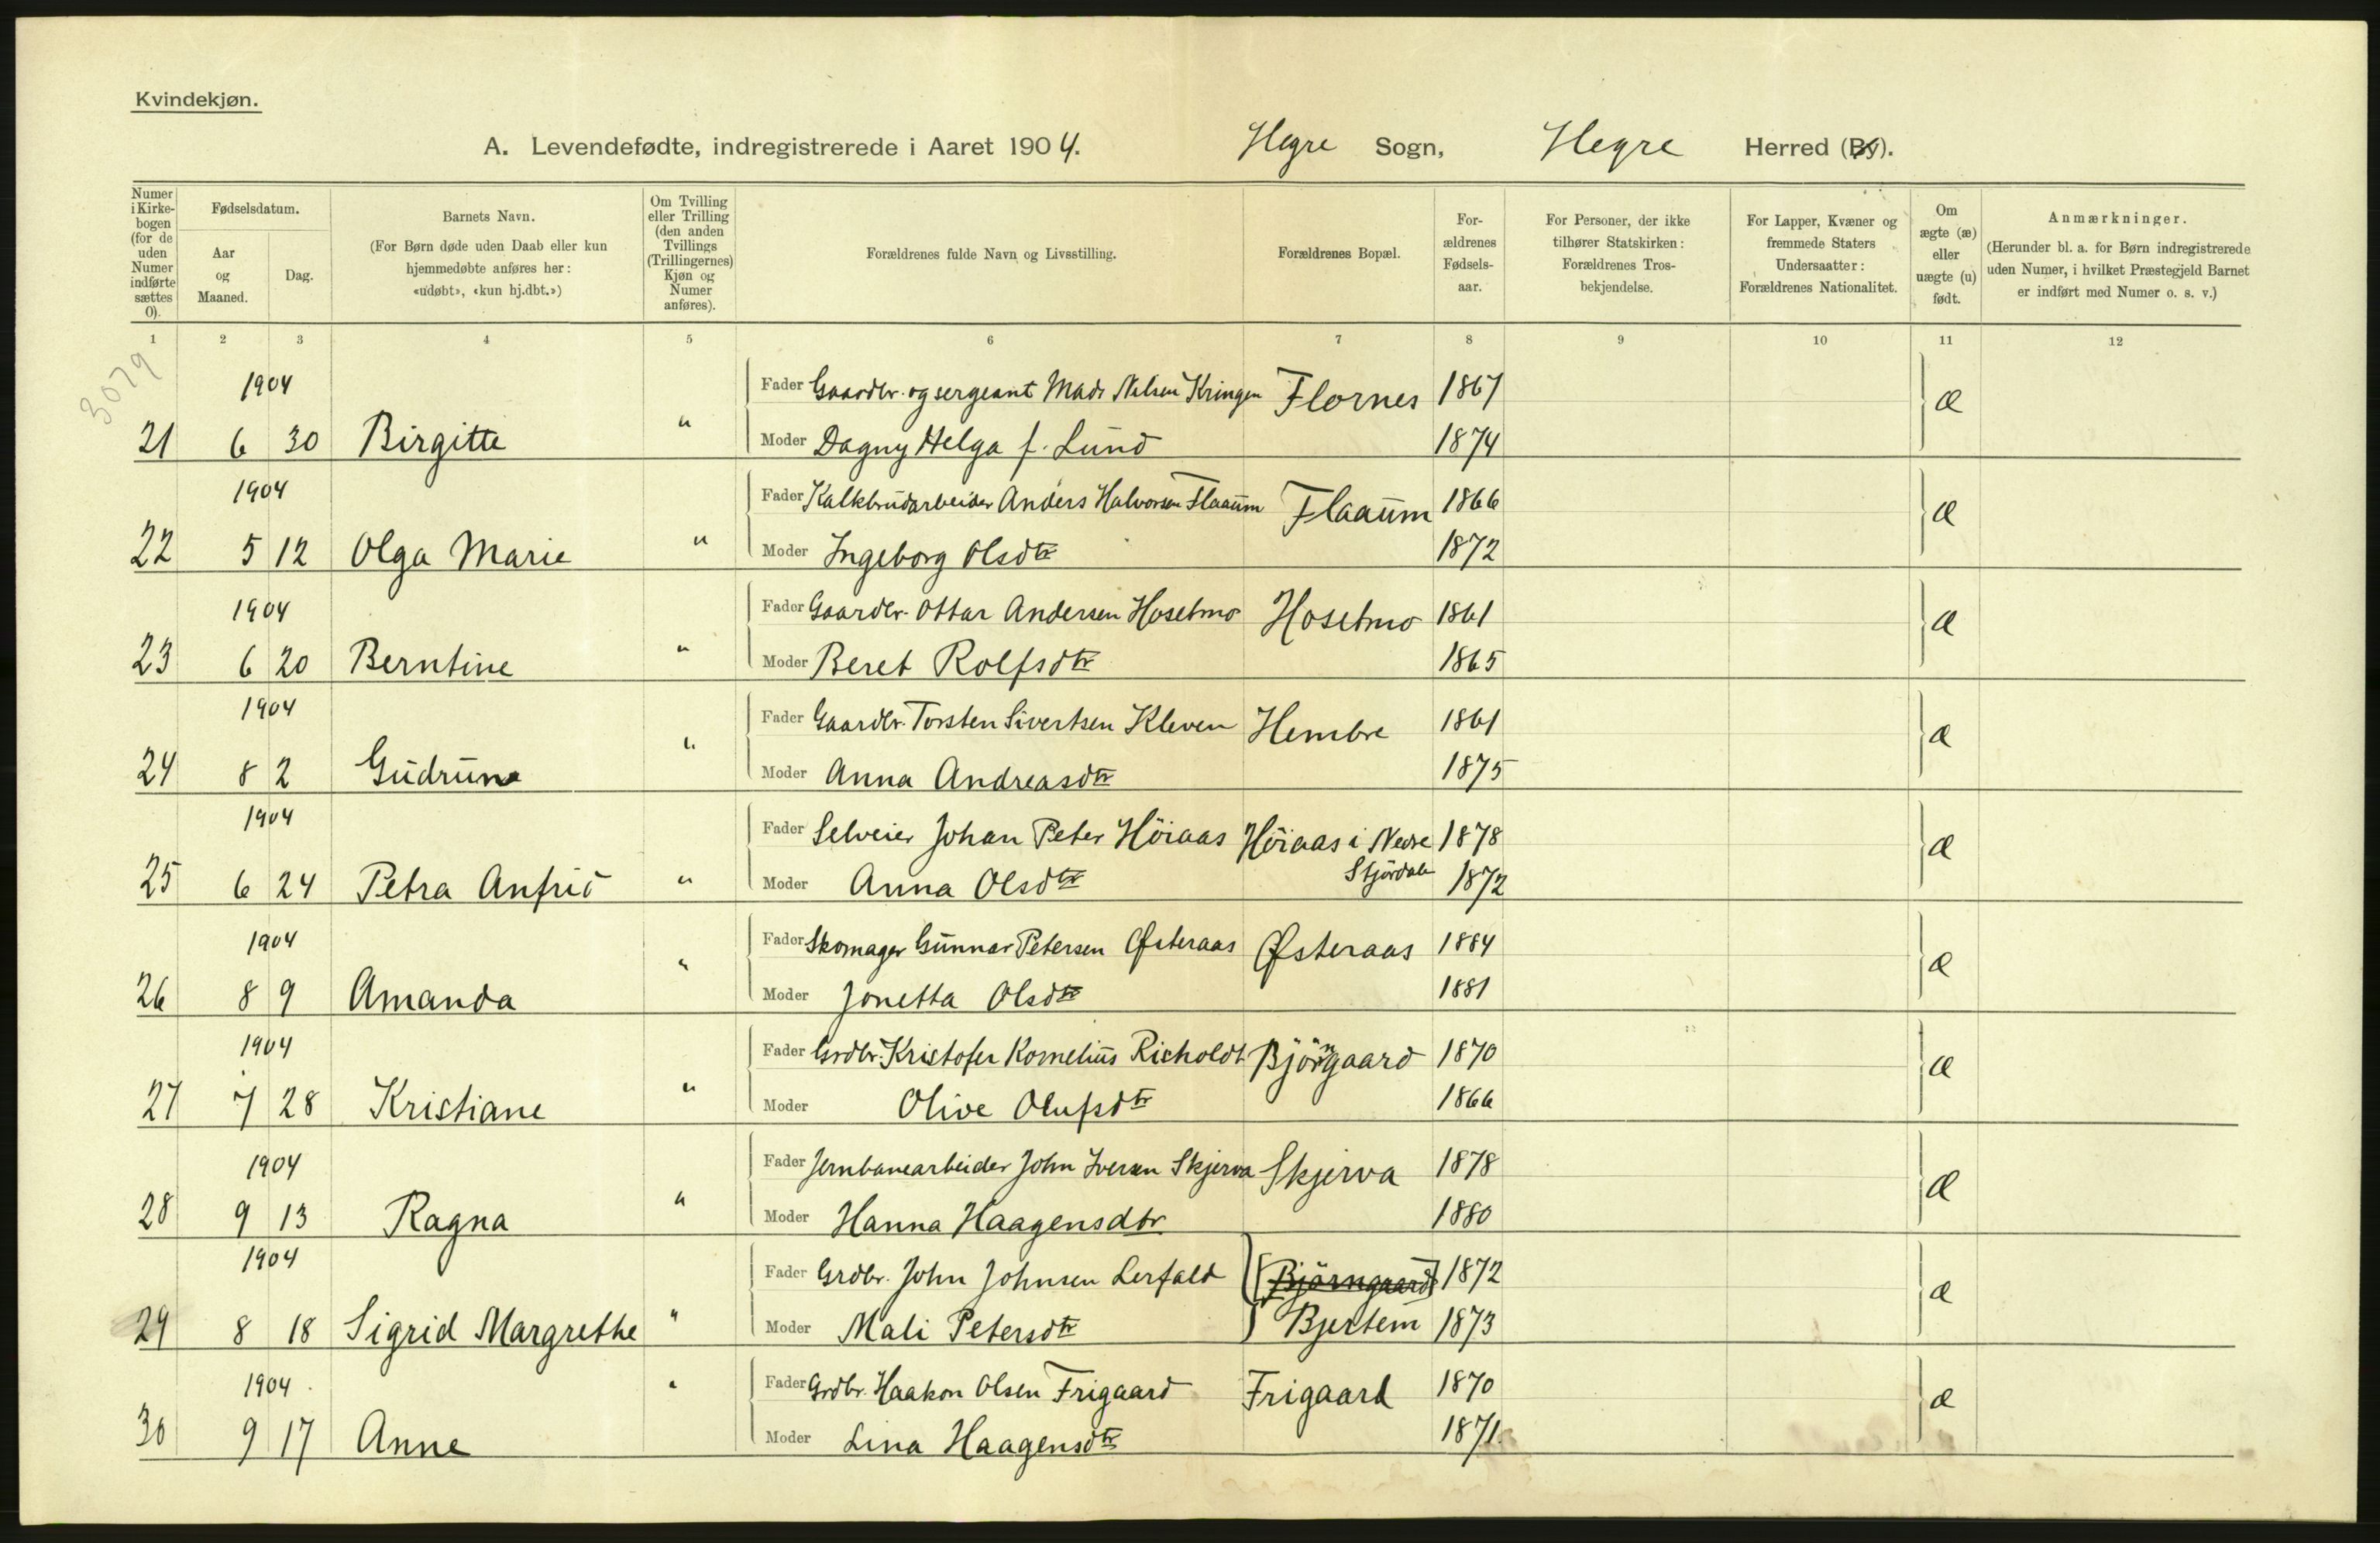 Kvindekjøn.
A. Levendefødte, indregistrerede i Aaret 1904. Hegre Sogn, Hegre Herred (By).
Numer i Kirkebogen (for de uden Numer indførte sættes 0).
Fødselsdatum.
Aar og Maaned.
Dag.
Barnets Navn.
(For Børn døde uden Daab eller kun hjemmedøbte anføres her: «udøbt», «kun hj.dbt.»)
Om Tvilling eller Trilling (den anden Tvillings (Trillingernes) Kjøn og Numer anføres).
Forældrenes fulde Navn og Livsstilling.
Forældrenes Bopæl.
Forældrenes Fødselsaar.
For Personer, der ikke tilhører Statskirken: Forældrenes Trosbekjendelse.
For Lapper, Kvæner og fremmede Staters Undersaatter: Forældrenes Nationalitet.
Om ægte (æ) eller uægte (u) født.
Anmærkninger.
(Herunder bl. a. for Børn indregistrerede uden Numer, i hvilket Præstegjeld Barnet er indført med Numer o. s. v.)
1 2 3 4 5 6 7 8 9 10 11 12
3079
1904 Fader Gaardbr. og sergeant Mads Nilsen Kringen Flornes 1867 æ
21 6 30 Birgitte " Moder Dagny Helga f. Lund 1874
1904 Fader Kalkbrudarbeider Anders Halvorsen Flaaum Flaaum 1866 æ
22 5 12 Olga Marie " Moder Ingeborg Olsdtr 1872
1904 Fader Gaardbr. Ottar Andersen Hosetmo Hosetmo 1861 æ
23 6 20 Berntine " Moder Beret Rolfsdtr 1865
1904 Fader Gaardbr. Torsten Sivertsen Kleven Hembre 1861 æ
24 8 2 Gudrun " Moder Anna Andreasdtr 1875
1904 Fader Selveier Johan Peter Höiaas Höiaas i Nedre 1878 æ
Stjördalen
25 6 24 Petra Anfrid " Moder Anna Olsdtr 1872
1904 Fader Skomager Gunnar Petersen Østeraas Østeraas 1884 æ
26 8 9 Amanda " Moder Jonetta Olsdtr 1881
1904 Fader Grdbr. Kristofer Kornelius Richoldt Björngaard 1870 æ
27 7 28 Kristiane " Moder Olive Olufsdtr 1866
1904 Fader Jernbanearbeider John Iversen Skjerva Skjerva 1878 æ
28 9 13 Ragna " Moder Hanna Haagensdtr 1880
1904 Fader Grdbr. John Johnsen Lerfald Björngaard 1872 æ
29 8 18 Sigrid Margrethe " Moder Mali Petersdtr Bjertem 1873
1904 Fader Grdbr. Haakon Olsen Frigaard Frigaard 1870 æ
30 9 17 Anne " Moder Lina Haagensdtr 1871.